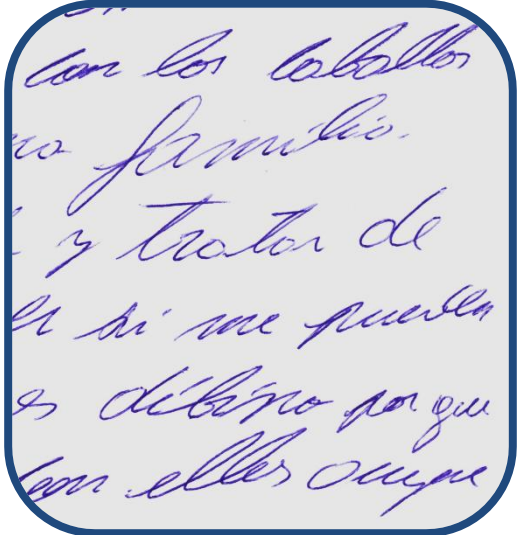 con los caballos
familia.
y tratar de
si me pueden
es dibino por que
con elles